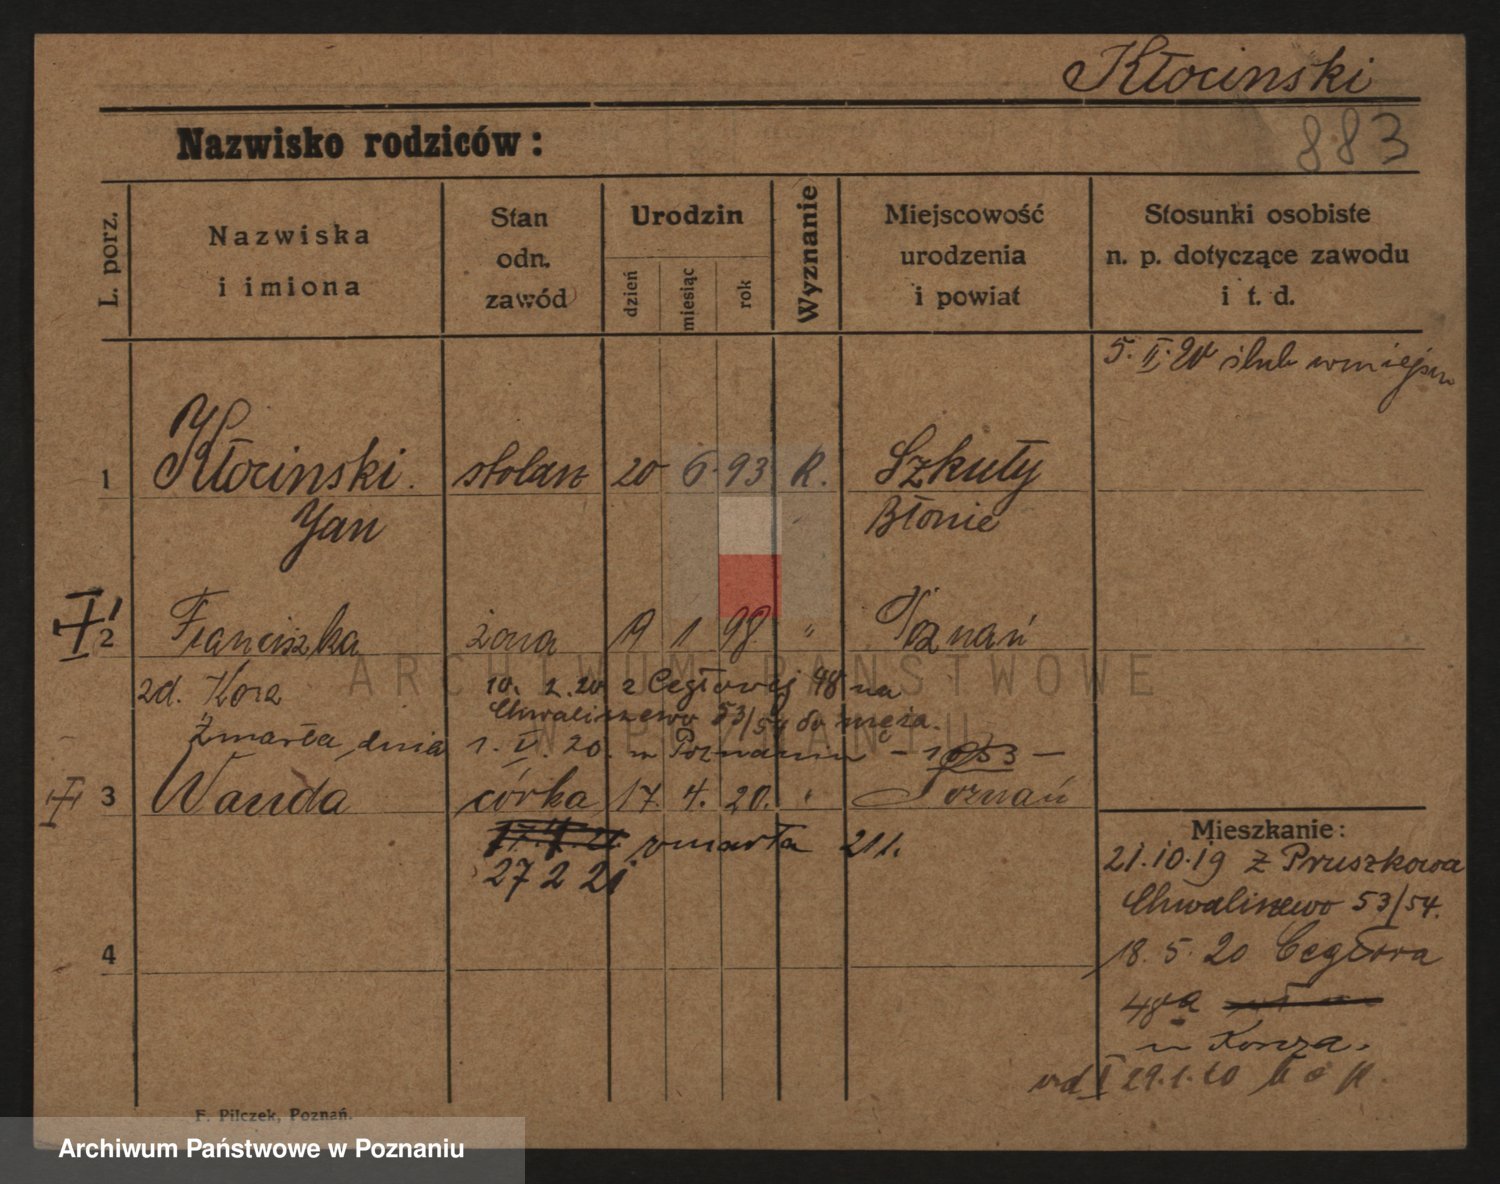 Kłocinski
Nazwisko rodziców:
883
L. porz.
Nazwiska
i imiona
Stan
odn.
zawód
Urodzin
dzień
miesiąc
rok
Wyznanie
Miejscowość
urodzenia
i powiat
Stosunki osobiste
n. p. dotyczące zawodu
i t. d.
5. II. 20 ślub w miejscu
1 Kłocinski. stolarz 20 6. 93 R. Szkuły
Jan Błonie
2 Franciszka żona 19 1 98 " Poznań
zd. Kora 10. 2. 20 z Cegłowej 48 na
Chwaliszewo 53/54 do męża.
Zmarła dnia 1. V. 20. w Poznaniu - 1053 -
3 Wanda córka 17. 4. 20. " Poznań
zmarła 21 r.
27 2 21
4
Mieszkanie:
21.10.19 z Pruszkowa
Chwaliszewo 53/54.
18. 5. 20 Cegłowa
48a
u Korcza.
od 29.1.20
F. Pilczek, Poznań.
ARCHIWUM PAŃSTWOWE
W POZNANIU
Archiwum Państwowe w Poznaniu